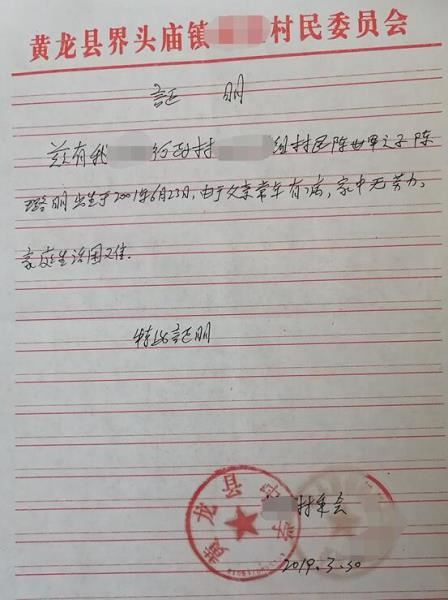 黄龙县界头庙镇 村民委员会
証 明
兹有我 行政村 组村民陈世军之子陈
璐明出生于2001年6月23日,由于父亲常年有病,家中无劳力,
家庭生活困难.
特此証明
村委会
黄龙县中学
2019.3.30